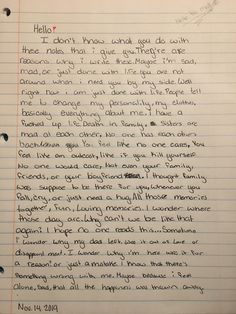 Hello
I don't know what you do with
these notes that I give you. They're are
reasons why I write these. Maybe I'm sad,
mad, or just done with life. you are not
around when I need you by my side. Well
right now I am just done with life. People tell
me to change my personality, my clothes,
basically everything about me. I have a
fucked up life. Death in family, Sisters are
mad at each other. No one has each others
back
You feel like no one cares, You
feel like an outcast, like if you kill yourself
No one would care, Not even your family,
friends, or your boyfriend. I thought family
was suppose to be there for you, whenever you
fall, cry, or just need a hug. All those memories
together, Fun, Loving memories. I wonder where
those day are. Why can't we be like that
again. I hope no one reads this... Sometime
I wonder why my dad left, was it out of love or
disappointment. I wonder why I'm here was it for
a reason or just a mistake. I know that there's
something wrong with me. Maybe because I feel
alone, sad, that all the happiness was thrown away.
Nov. 14, 2019